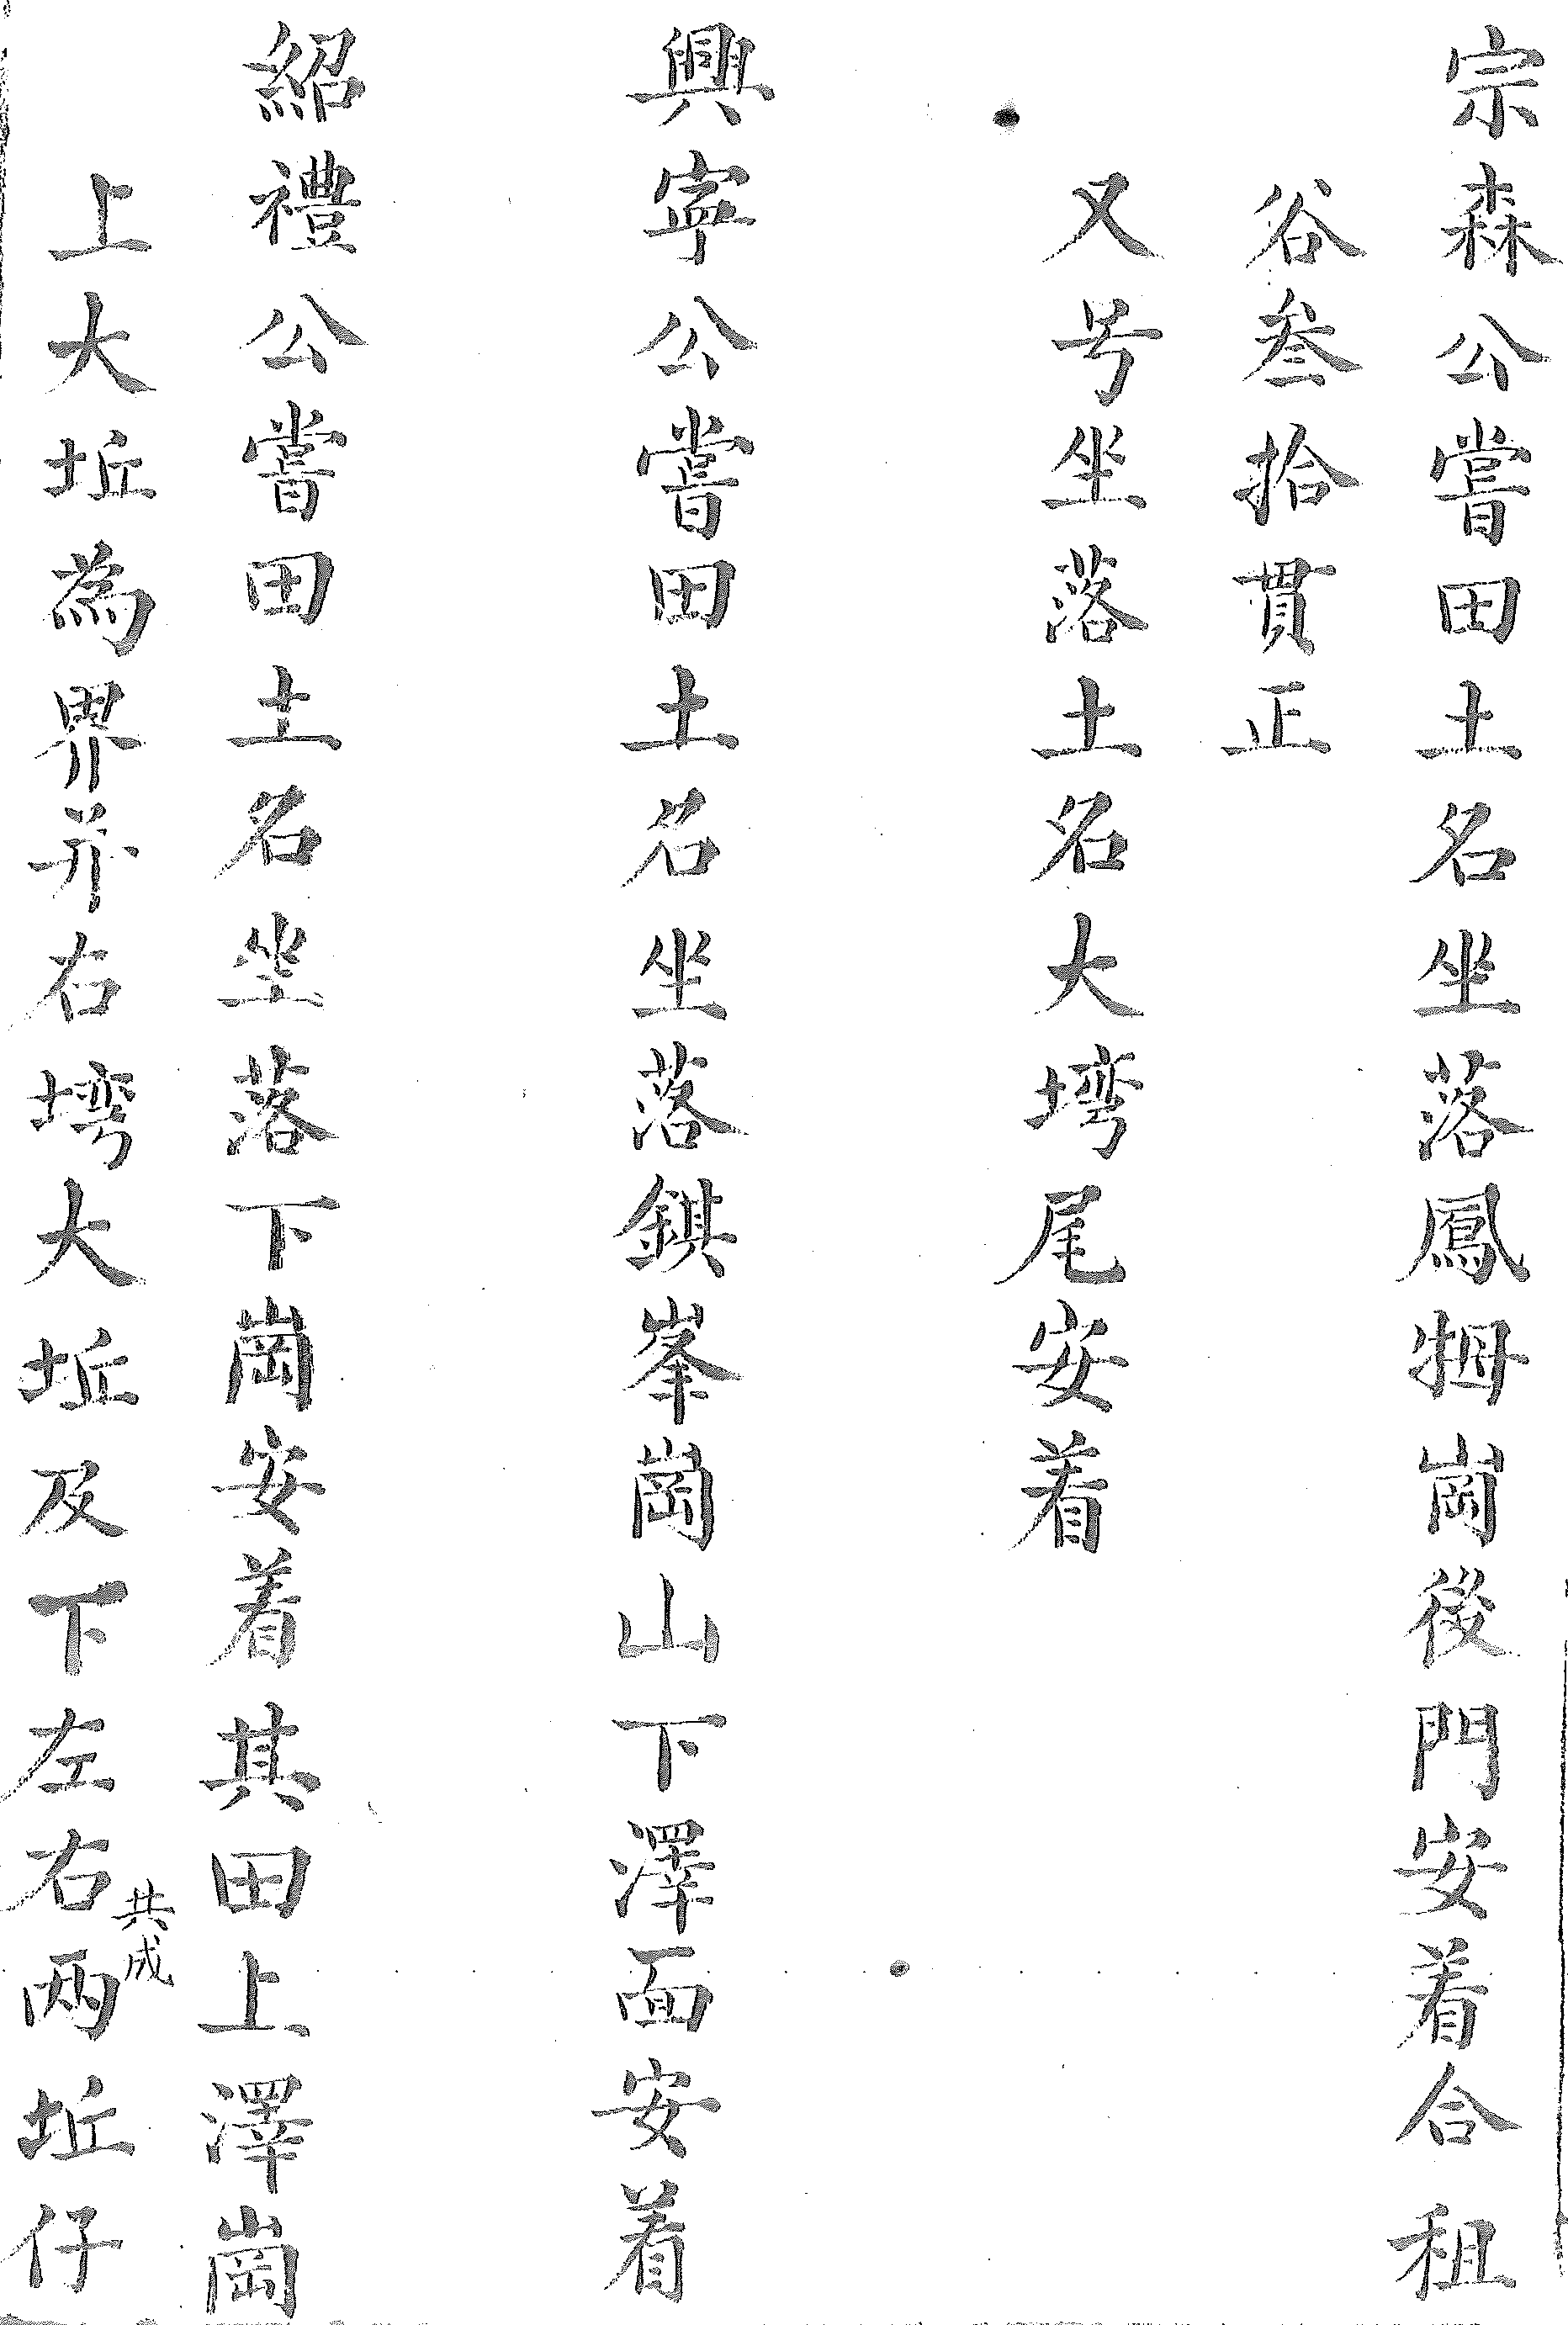 宗森公嘗田土名坐落鳳拇崗後門安着合租
谷叁拾貫正
又号坐落土名大塆尾安着
興寜公嘗田土名坐落錤峯崗山下澤面安着
紹禮公嘗田土名坐落下崗安着其田上澤崗
上大坵為界并右塆大坵及下左右两坵仔
共成